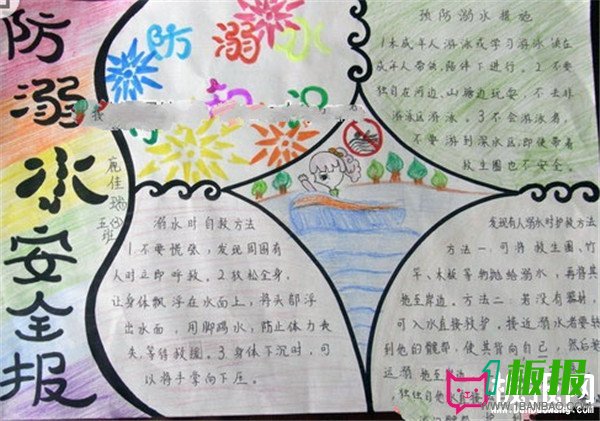 防溺水安全报
范佳瑞
五(3)班
防溺水
知识
预防溺水措施
1未成年人游泳或学习游泳须在
成年人带领、陪伴下进行。2.不要
独自在河边、山塘边玩耍,不去非
游泳区游泳。3.不会游泳者,
不要游到深水区,即使带着
救生圈也不安全。
溺水时自救方法
1.不要慌张,发现周围有
人时立即呼救。2.放松全身,
让身体飘浮在水面上,将头部浮
出水面,用脚踢水,防止体力丧
失,等待救援。3.身体下沉时,可
以将手掌向下压。
发现有人溺水时护救方法
方法一,可将救生圈,竹
竿、木板等物抛给溺水,再将其
拖至岸边。方法二若没有器材,
可入水直接救护。接近溺水者要转
到他的髋部,使其背向自己,然后
远溺拖至
独自
1板报
WWW.1BANBAO.COM